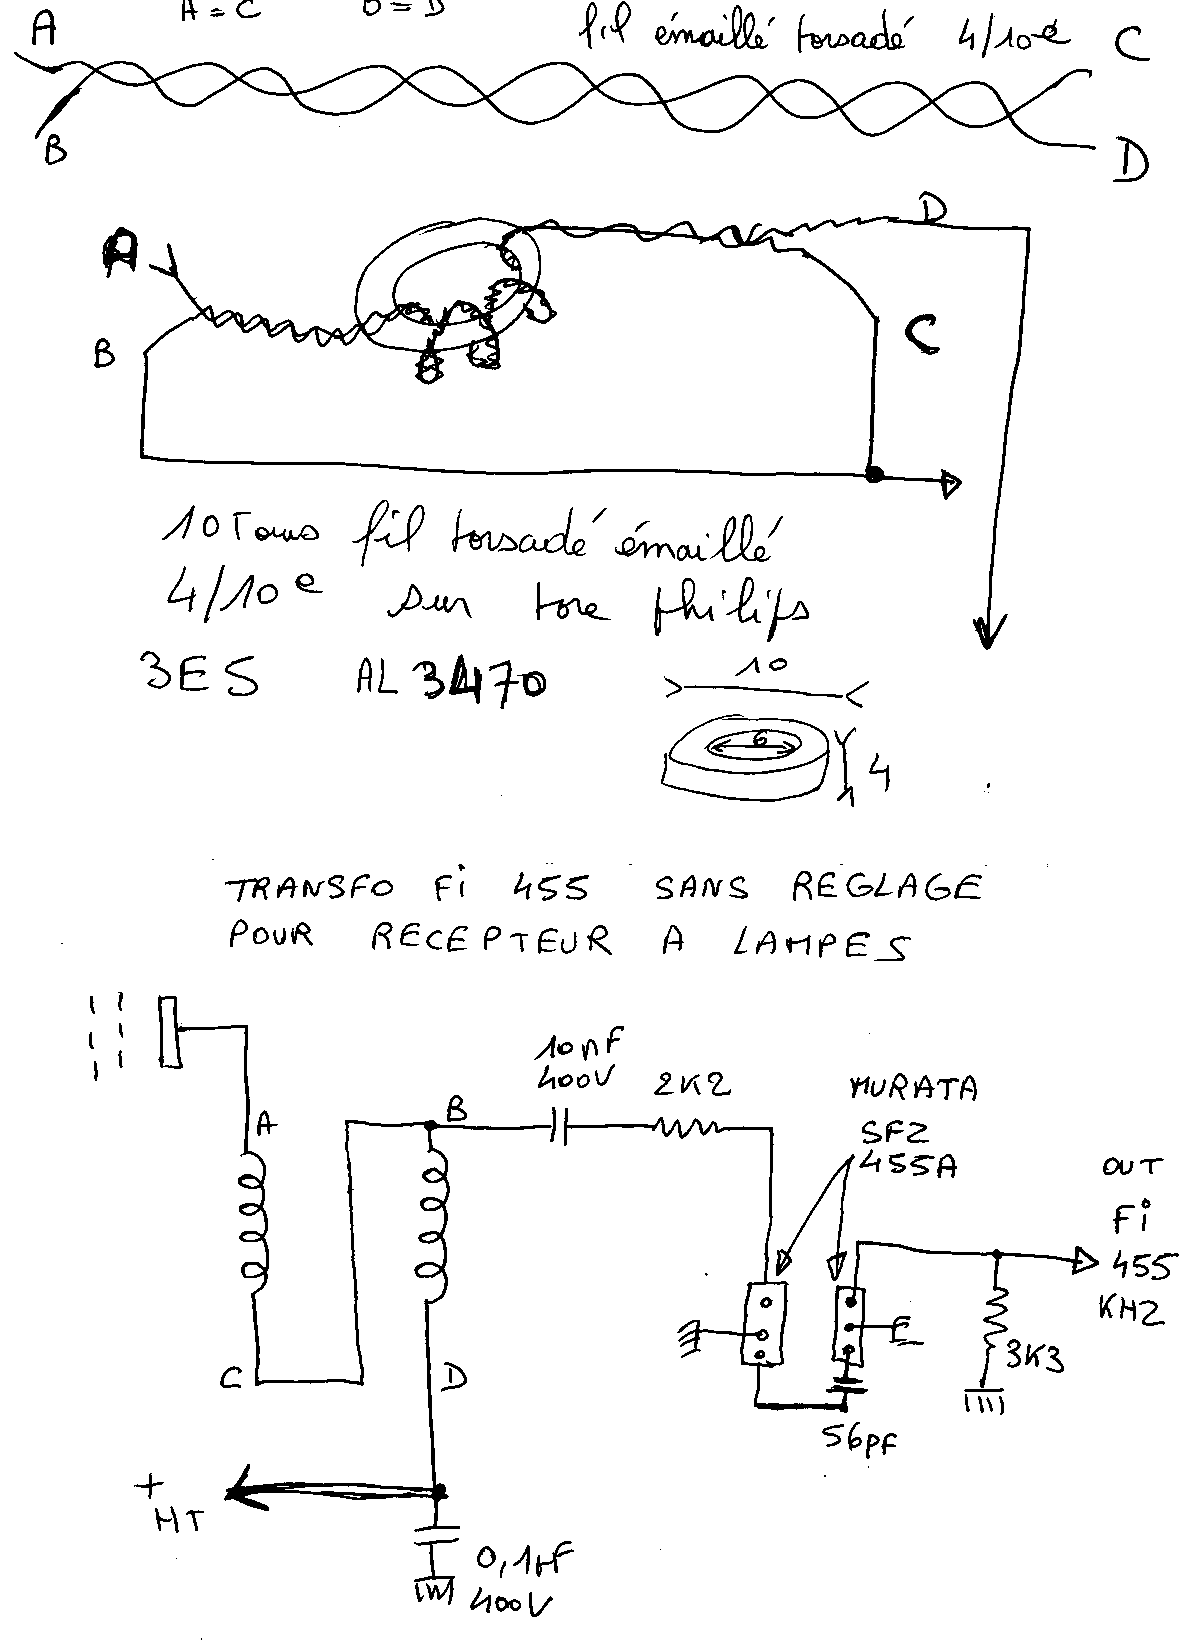 A = C
A
fil émaillé torsadé 4/10e
C
B
D
A
D
B
C
10 Tours fil torsadé émaillé
4/10e sur tore philips
3E5 AL 3470
10
6
4
TRANSFO Fi 455 SANS REGLAGE
POUR RECEPTEUR A LAMPES
10nF
400V
2K2
MURATA
SFZ
455A
A
B
OUT
Fi
455
KHZ
3K3
C
D
56pF
+
HT
0,1µF
400V